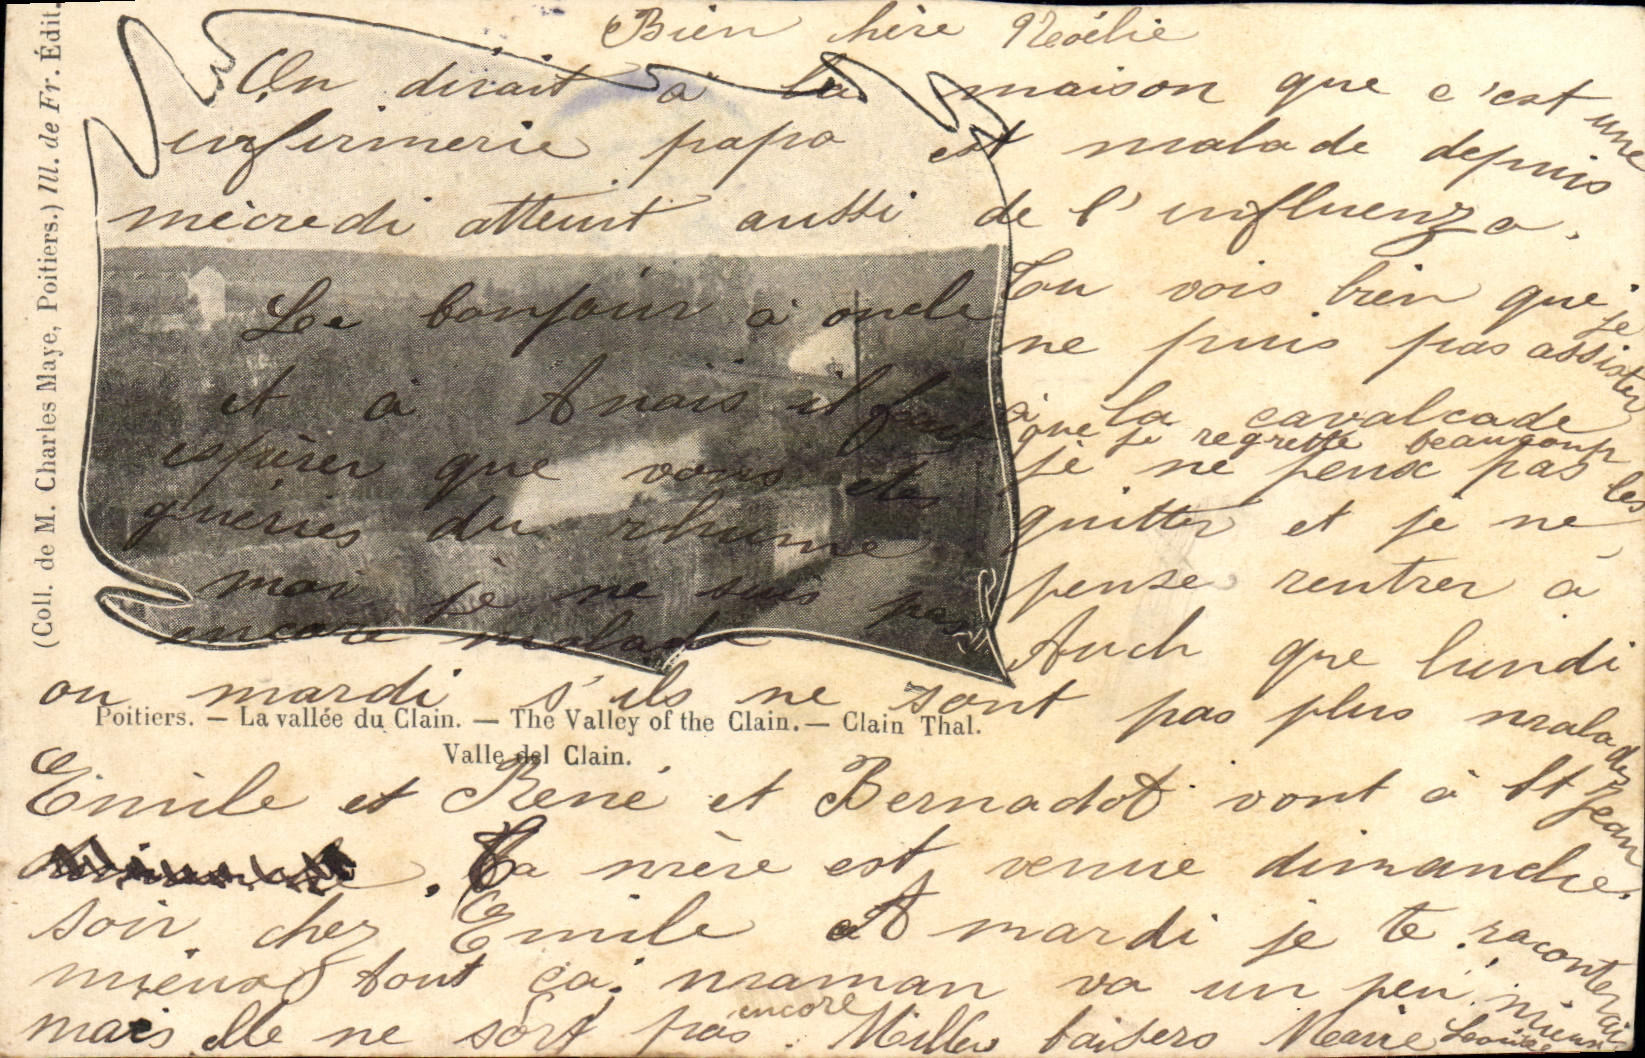 Bien chère Noélie
On dirait à la maison que c'est une
infirmerie papa est malade depuis
mècredi atteint aussi de l'influenza.
Tu vois bien que je
ne puis pas assister
à la cavalcade
que je regrette beaucoup
je ne peux pas les
quitter et je ne
pense rentrer à
Auch que lundi
ou mardi s'ils ne sont pas plus malades
Emile et René et Bernadot vont à St Jean
. Ta mère est venue dimanche.
soir chez Emile et mardi je te raconterai
mieux tout ça. maman va un peu mieux
mais elle ne sort pas encore. Milles baisers Marie Louise
Le bonjour à oncle
et à Anaïs il faut
espérer que vous etes
guéries du rhume
moi je ne suis pas
encore malade
Poitiers. — La vallée du Clain. — The Valley of the Clain. — Clain Thal.
Valle del Clain.
(Coll. de M. Charles Maye, Poitiers.) Ill. de Fr. Édit.